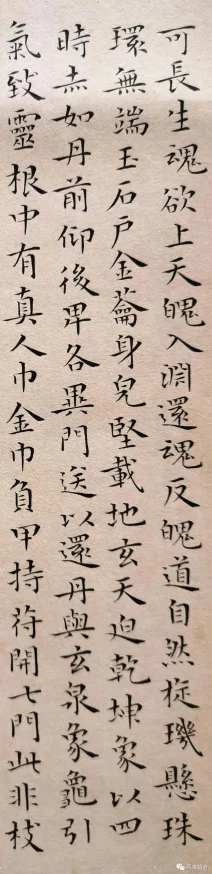 可長生魂欲上天魄入淵還魂反魄道自然旋璣懸珠
環無端玉石戶金籥身皃堅載地玄天迫乾坤象以四
時赤如丹前仰後卑各異門送以還丹與玄泉象龜引
氣致靈根中有真人巾金巾負甲持苻開七門此非枝